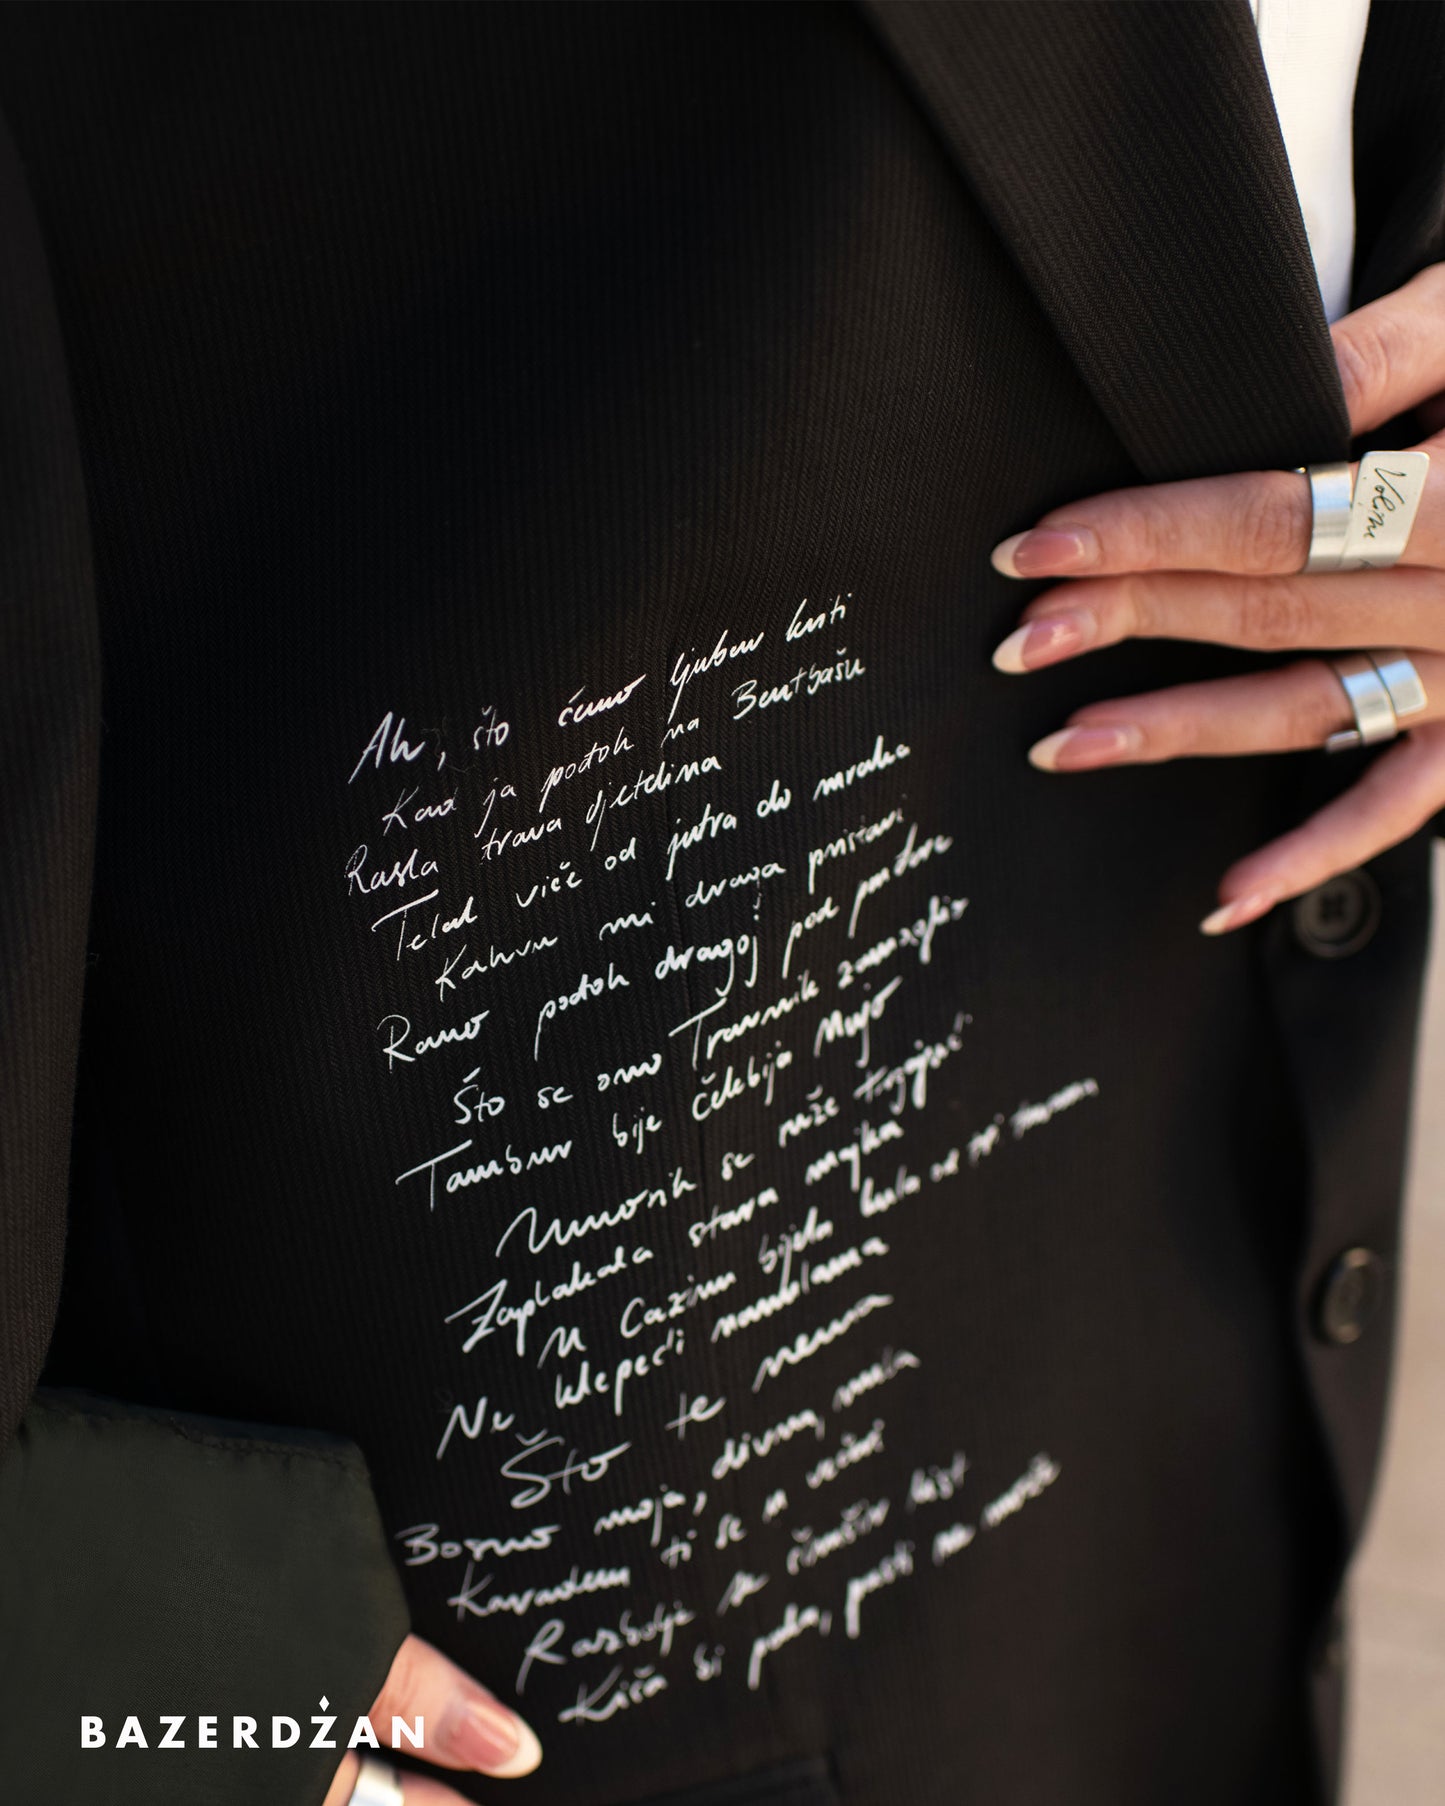 Ah, što ćemo ljubav kriti
Kad ja pođoh na Bentbašu
Rasla trava djetelina
Telal viče od jutra do mraka
Kahvu mi draga pristavi
Rano pođoh dragoj pod pendžere
Što se ono Travnik zamaglio
Tambur bije čelebija Mujo
Umorih se niže Trgajući
Zaplakala stara majka
U Cazinu bijela kula od tri tavana
Ne klepeći nanulama
Što te nema
Bosno moja, divna, mila
Karadeniz ti se u
Razbolje se šimšir list
Kiša bi pala, pasti ne može
Volim
BAZERDŽAN